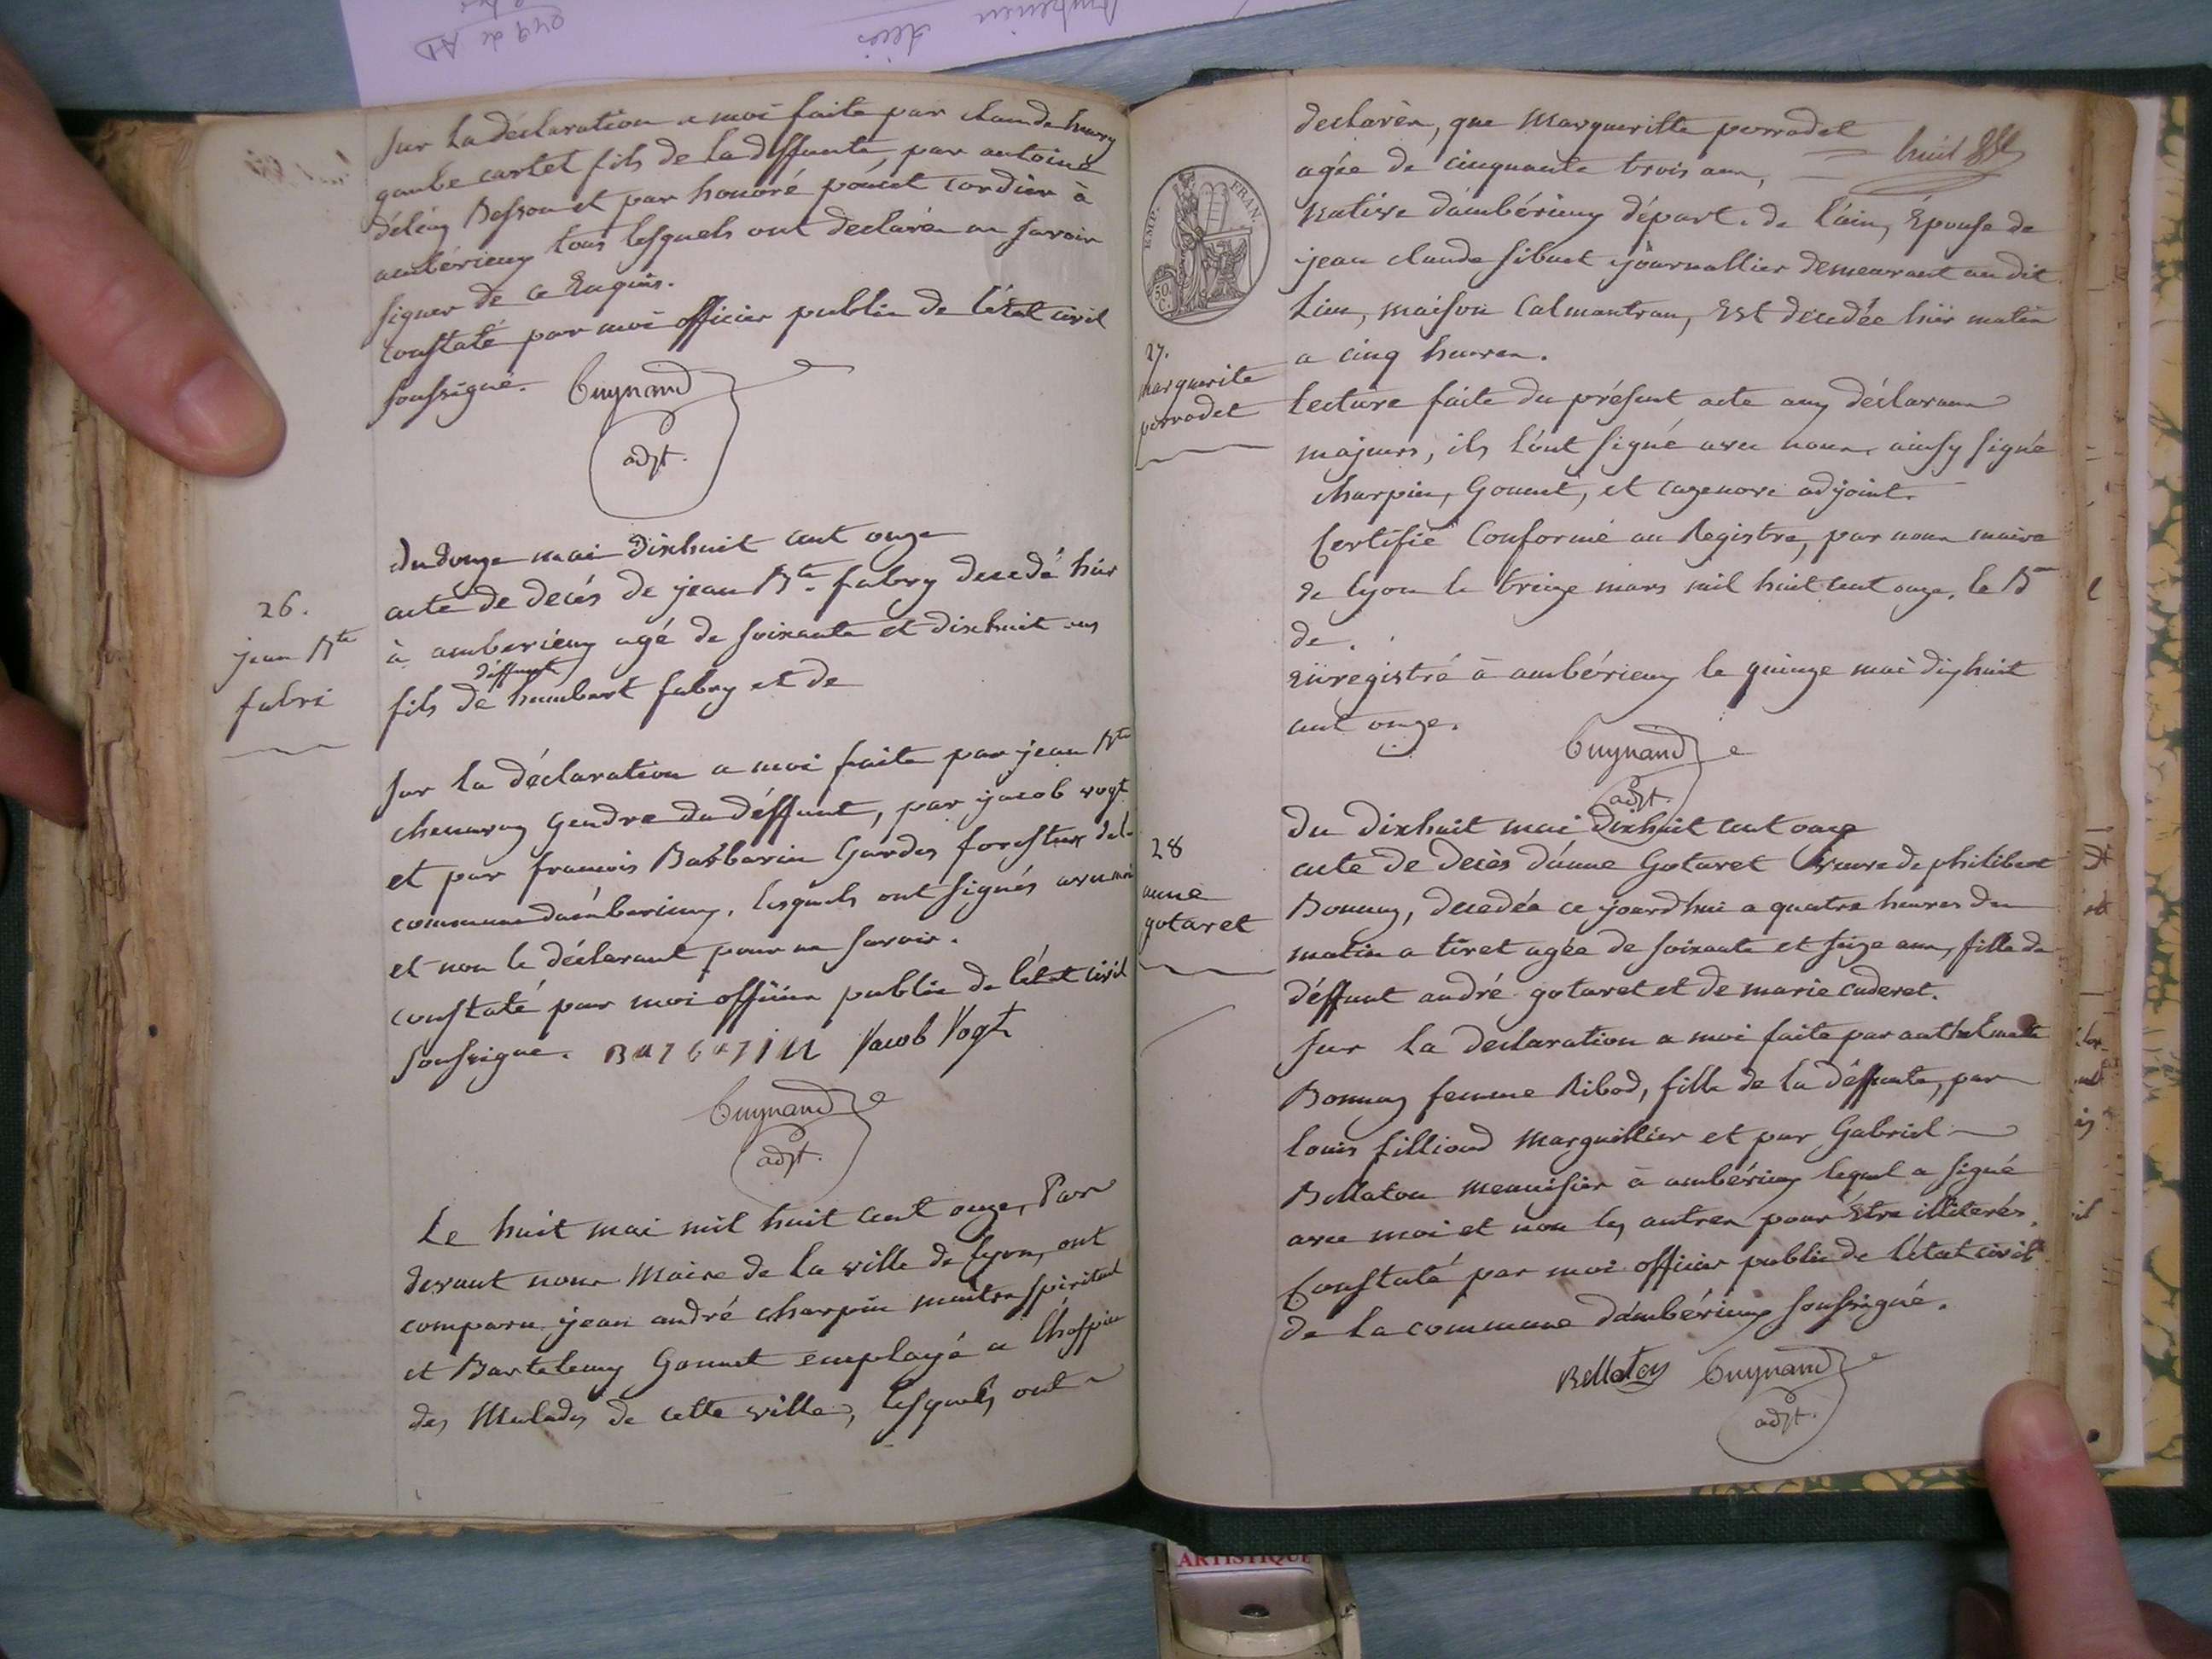 sur la déclaration a moi faite par claude henry
gaube cartet fils de la deffunte, par antoine
déléaz Besson et par honoré poncet cordier à
ambérieuy tous lesquels ont declarés ne savoir
signer de ce Enquis.
constaté par moi officier public de l'état civil
soussigné. Cuynand
adjt.
du douze mai dixhuit cent onze
26.
jean Bte
fabri
acte de decés de jean Bte. fabry decedé hier
à amberieuy agé de soixante et dixhuit ans
deffunt
fils de humbert fabry et de
sur la déclaration a moi faite par jean Bte
chenavaz gendre du deffunt, par jacob vogt
et par francois Barbarin Gardes forestiers de la
commune dambérieuy, lesquels ont signés avec moi
et non le déclarant pour ne savoir.
constaté par moi officier public de l'état civil
soussigné. Barbarin Jacob Vogt
Cuynand
adjt.
Le huit mai mil huit cent onze, Par
devant nous Maire de la ville de lyon, ont
comparu jean andré charpin maitre spirituel
et Bartelemy Gonnet employé a l'hospice
des Malades de cette ville, lesquels ont
EMP. FRAN.
50 C.
declarés, que Margueritte perrodet
agée de cinquante trois ans, huit
Native dambérieuy départ. de l'ain, Épouse de
jean claude sibuet journallier demeurant au dit
Lieu, maison Calmantran, Est decedée hier matin
a cinq heures.
27.
Marguerite
perrodet
Lecture faite du présent acte aux déclarans
majeurs, ils l'ont signé avec nous. ainsy signé
charpin, Gonnet, et cazenove adjoint.
Certifié Conforme au Registre, par nous maire
de lyon le treize mars mil huit cent onze. le Bon
de.
Enregistré à ambérieuy le quinze mai dixhuit
cent onze.
Cuynand
adjt.
Du dixhuit mai dixhuit cent onze
28
anne
gotaret
acte de decès d'anne Gotaret veuve de philibert
Bonnaz, decedée ce jourdhui a quatre heures du
matin a tiret agée de soixante et seize ans, fille de
déffunt andré gotaret et de marie caderet.
sur la declaration a moi faite par anthelmette
Bonnaz femme Ribod, fille de la déffunte, par
louis filliond Marguillier et par Gabriel
Bellaton menuisier à ambérieuy lequel a signé
avec moi et non les autres pour Être illiterés.
Constaté par moi officier public de l'état civil
de la commune d'ambérieuy soussigné.
Bellaton Cuynand
adjt.
ARTISTIQUE